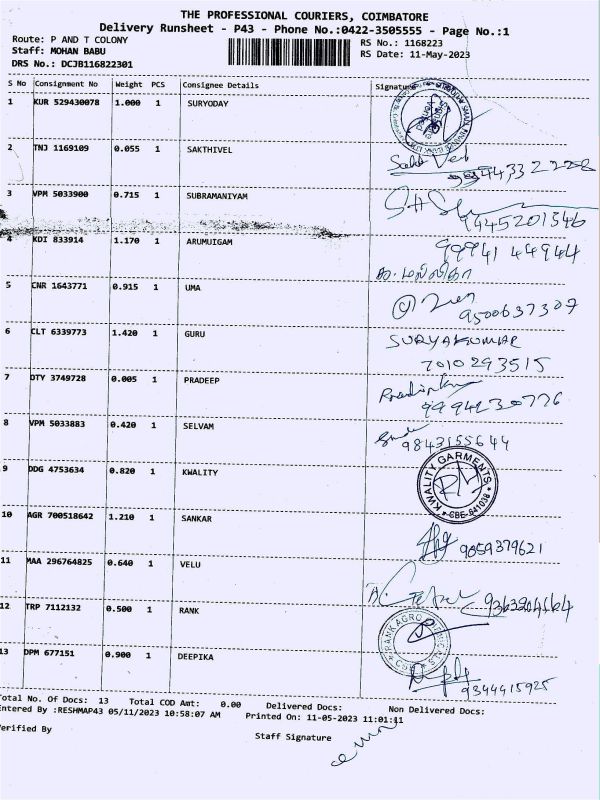 THE PROFESSIONAL COURIERS, COIMBATORE
Delivery Runsheet - P43 - Phone No.:0422-3505555 - Page No.:1
Route: P AND T COLONY RS No.: 1168223
Staff: MOHAN BABU RS Date: 11-May-2023
DRS No.: DCJB116822301
S No Consignment No Weight PCS Consignee Details Signature
1 KUR 529430078 1.000 1 SURYODAY
2 TNJ 1169109 0.055 1 SAKTHIVEL
3 VPM 5033900 0.715 1 SUBRAMANIYAM
9445201346
4 KDI 833914 1.170 1 ARUMUIGAM
99941 44944
5 CNR 1643771 0.915 1 UMA
9500637307
6 CLT 6339773 1.420 1 GURU SURYAKUMAR
7010293515
7 OTY 3749728 0.005 1 PRADEEP
8 VPM 5033883 0.420 1 SELVAM
9843155644
9 DDG 4753634 0.820 1 KWALITY
KWALITY GARMENTS
CBE-641038
10 AGR 700518642 1.210 1 SANKAR
9059379621
11 MAA 296764825 0.640 1 VELU
12 TRP 7112132 0.500 1 RANK
RANK AGRO
13 DPM 677151 0.900 1 DEEPIKA
9344415925
Total No. Of Docs: 13 Total COD Amt: 0.00 Delivered Docs: Non Delivered Docs:
Entered By :RESHMAP43 05/11/2023 10:58:07 AM Printed On: 11-05-2023 11:01:11
Verified By Staff Signature